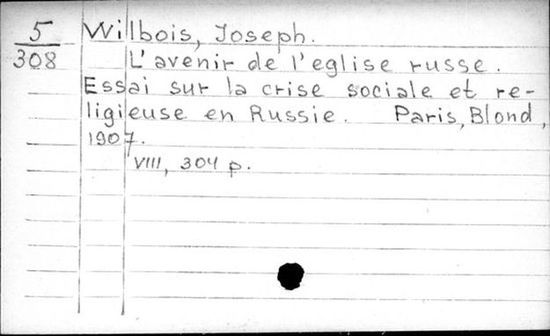 5
308
Wilbois, Joseph.
L'avenir de l'eglise russe.
Essai sur la crise sociale et re-
ligieuse en Russie. Paris, Blond,
1907.
VIII, 304 p.